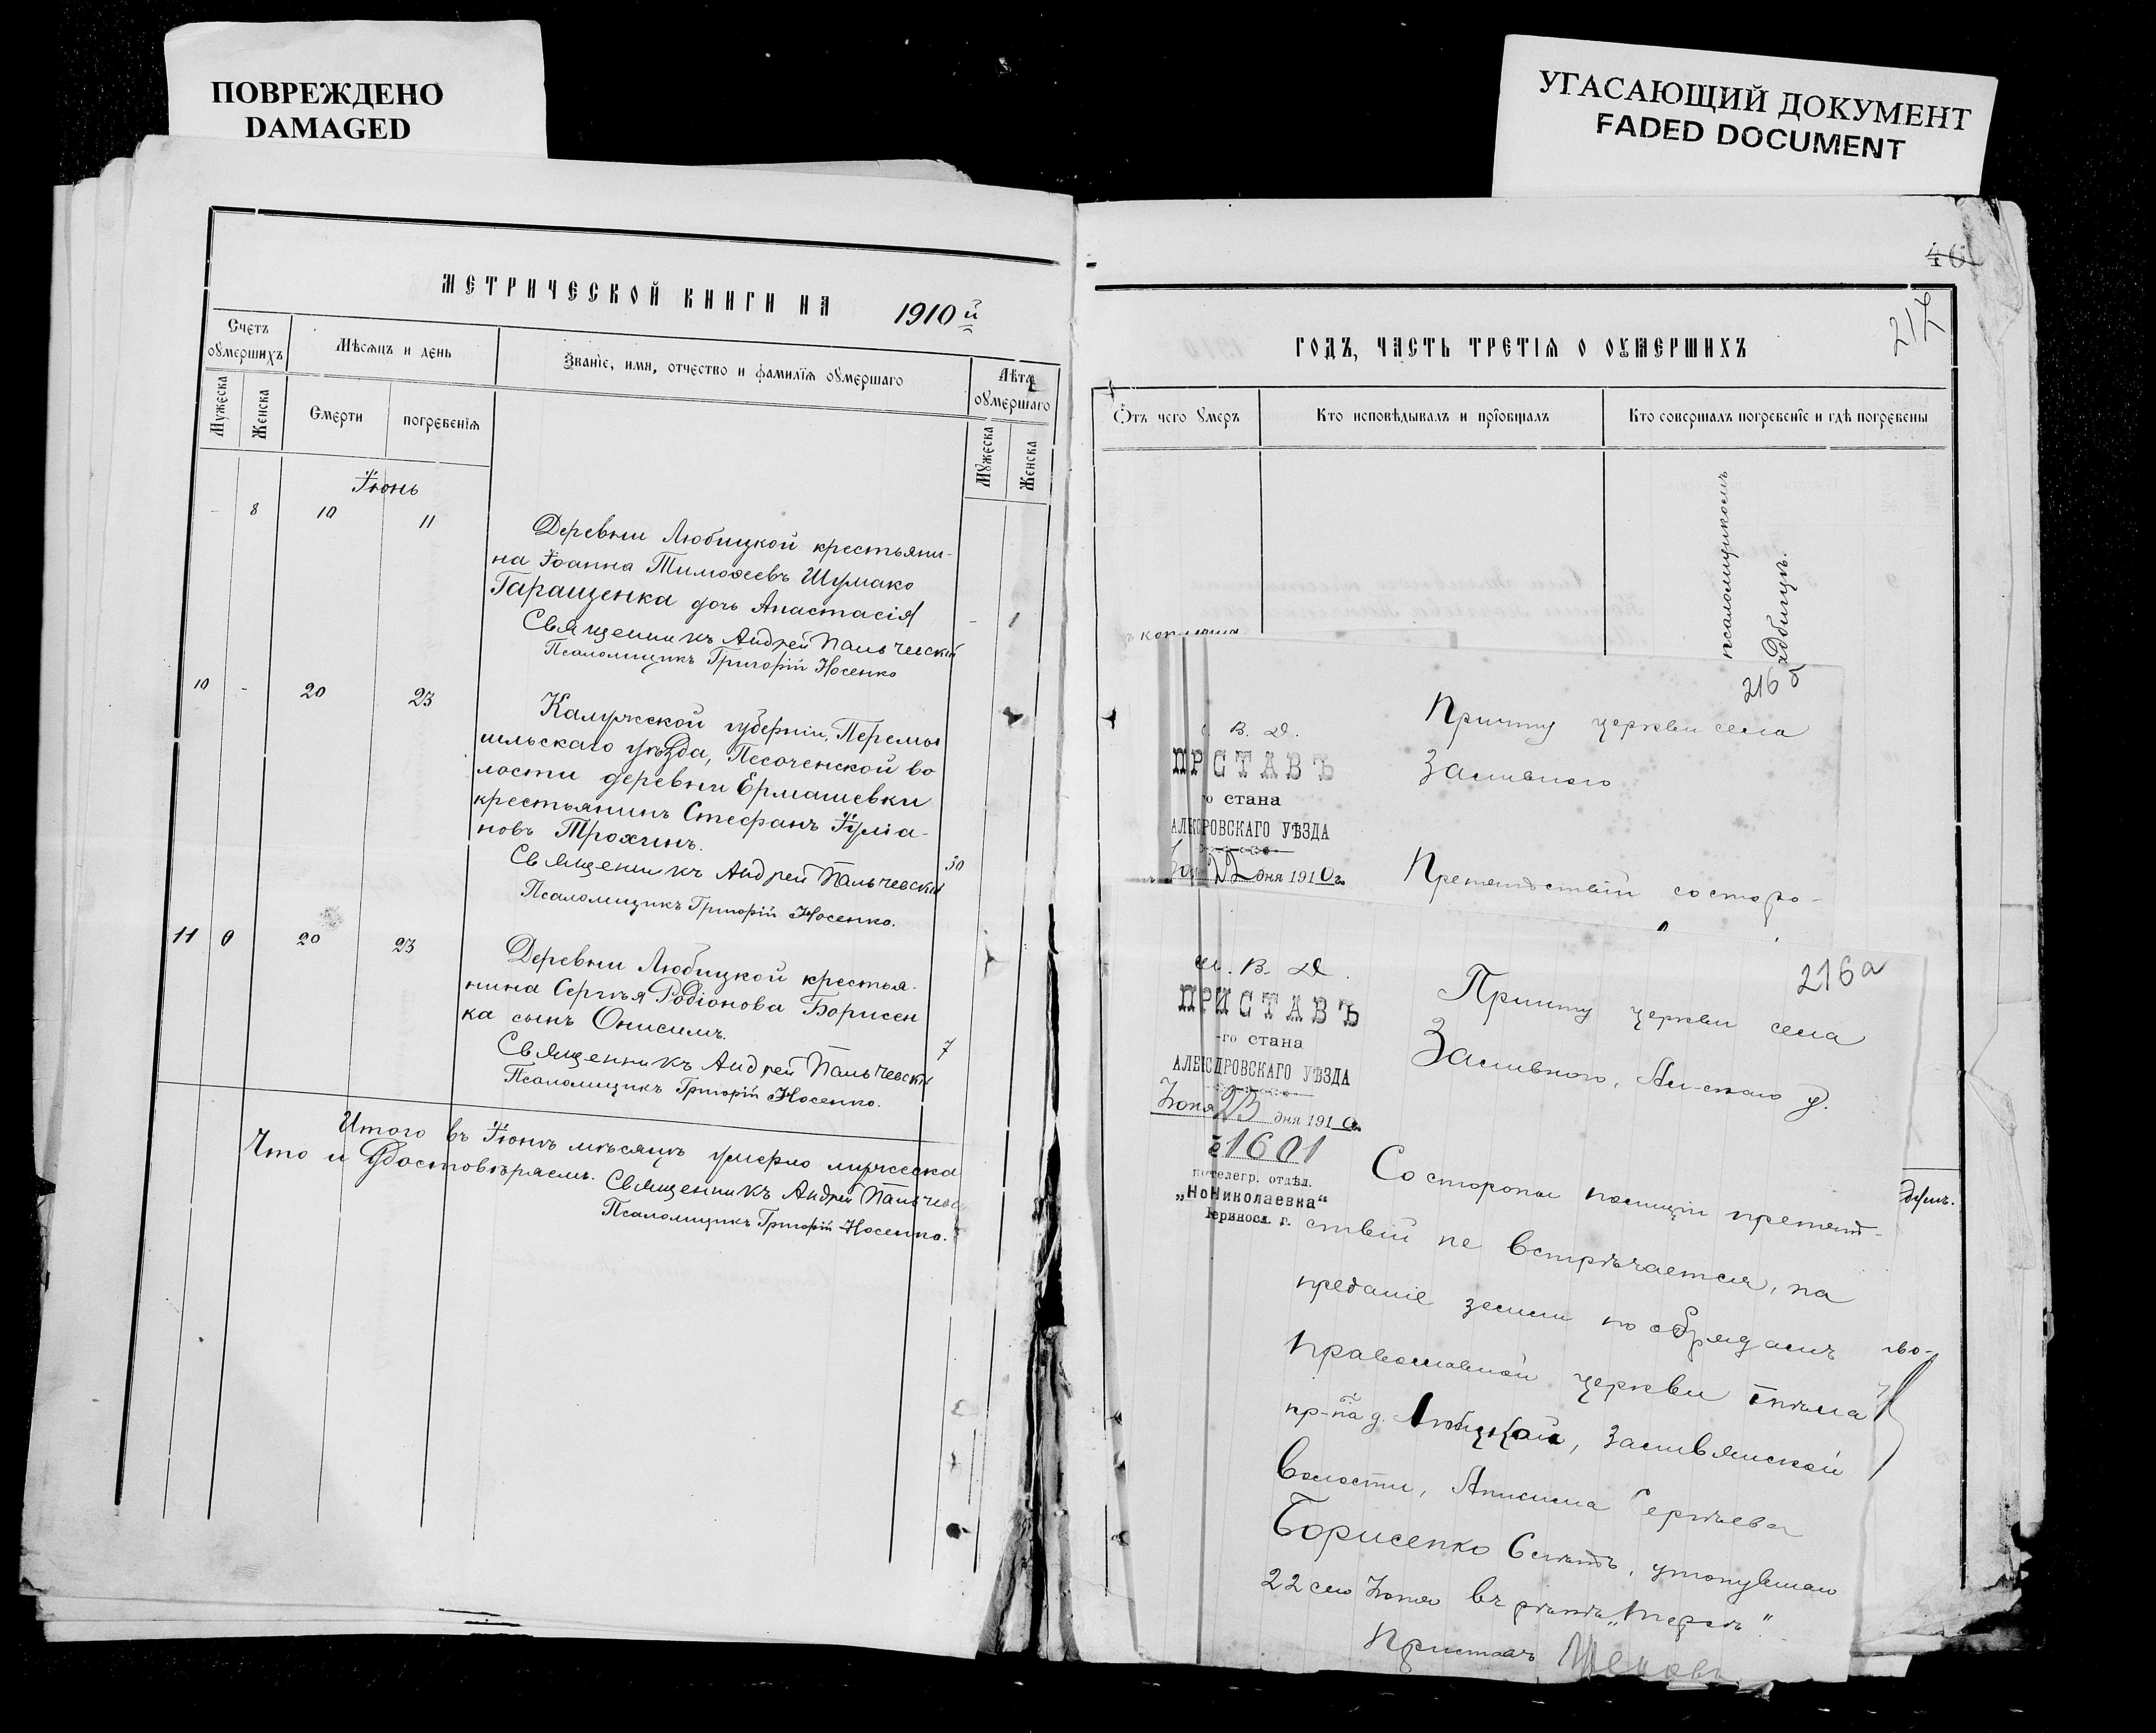 ПОВРЕЖДЕНО
DAMAGED
УГАСАЮЩИЙ ДОКУМЕНТ
FADED DOCUMENT
МЕТРИЧЕСКОЙ КНИГИ НА 1910й
Счетъ оумершихъ
Мѣсяцъ и день
Званіе, имя, отчество и фамилія оумершаго
Лѣта оумершаго
Мужеска
Женска
Смерти
погребенія
Мужеска
Женска
Іюнь
- 8 10 11
Деревни Любицкой крестьяни-
на Іоанна Тимоѳеевъ Шумако
Гаращенка дочь Анастасія
- 1
Священникъ Андрей Пальчевскій
Псаломщикъ Григорій Носенко
10 - 20 23
Калужской губерніи, Перемы
шльскаго уѣзда, Песоченской во
лости деревни Ермашевки
крестьянинъ Стефанъ Іуліа-
новъ Трохинъ.
30
Священникъ Андрей Пальчевскій
Псаломщикъ Григорій Носенко.
11 0 20 23
Деревни Любицкой крестья-
нина Сергѣя Родіонова Борисен
ка сынъ Онисимъ.
7
Священникъ Андрей Пальчевскі
Псаломщикъ Григорій Носенко.
Итого въ Іюнѣ мѣсяцѣ умерло мужеска
Что и удостовѣряемъ. Священникъ Андрей Пальчевс
Псаломщикъ Григорій Носенко.
40
217
ГОДЪ, ЧАСТЬ ТРЕТІЯ О ОУМЕРШИХЪ
Отъ чего умеръ
Кто исповѣдывалъ и пріобщалъ
Кто совершалъ погребеніе и гдѣ погребены
псаломщикомъ
216 б
В. Д.
ПРИСТАВЪ
го стана
РОВСКАГО УѢЗДА
22 дня 1910 г.
Причту церкви села
Заливнаго
Препятствій со сторо-
216 а
М. В. Д.
ПРИСТАВЪ
-го стана
АЛЕКСДРОВСКАГО УѢЗДА
Іюня 23 дня 1910 г.
1601
потелегр. отдѣл.
„НоНиколаевка“
Причту церкви села
Заливного, Ал-скаго у.
Со стороны полиціи препят-
ствій не встрѣчается, на
преданіе земли по обрядамъ
православной церкви тѣла
кр-на д. Любицкой, Заливянской
волости, Анисима Сергѣева
Борисенко 6 лѣтъ, утонувшаго
22 сего Іюня въ рѣкѣ „Терсѣ“.
Приставъ